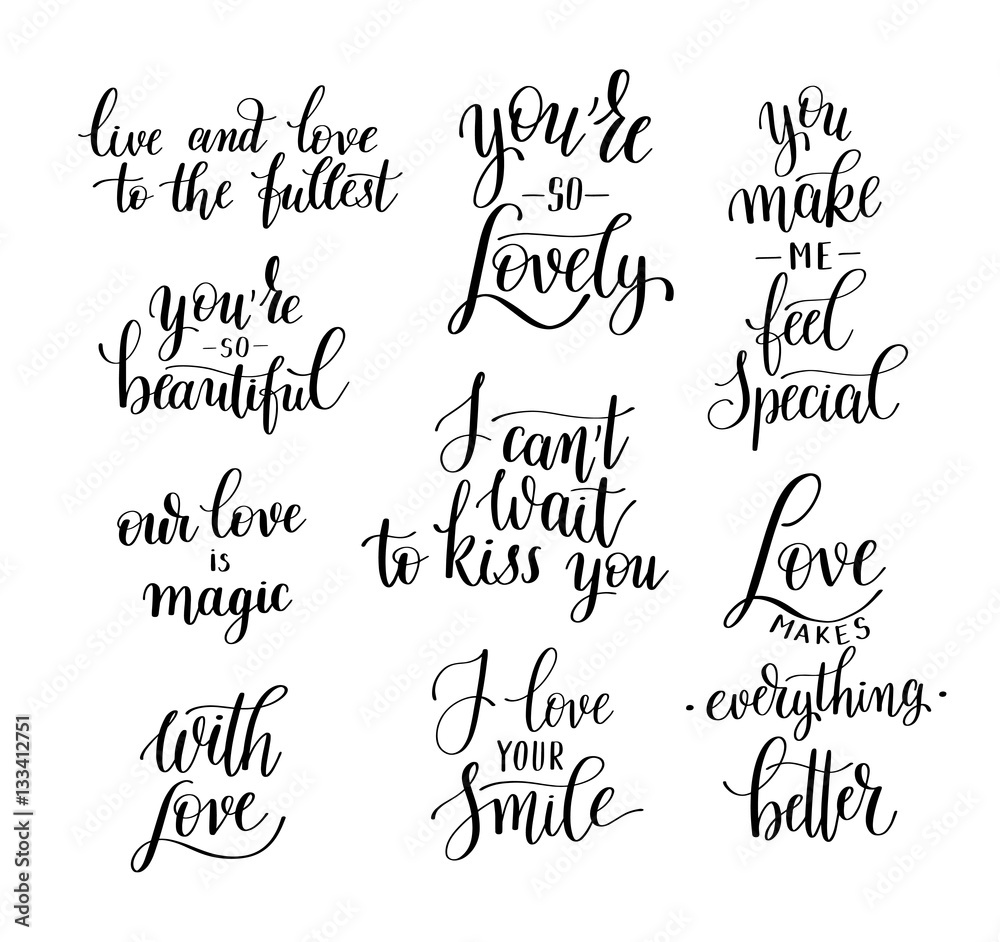 live and love
to the fullest
you're
-so-
beautiful
our love
is
magic
with
Love
you're
-SO-
Lovely
I can't
wait
to kiss you
I love
YOUR
Smile
you
make
-ME-
feel
Special
Love
MAKES
·everything·
better
Adobe Stock | #133412751